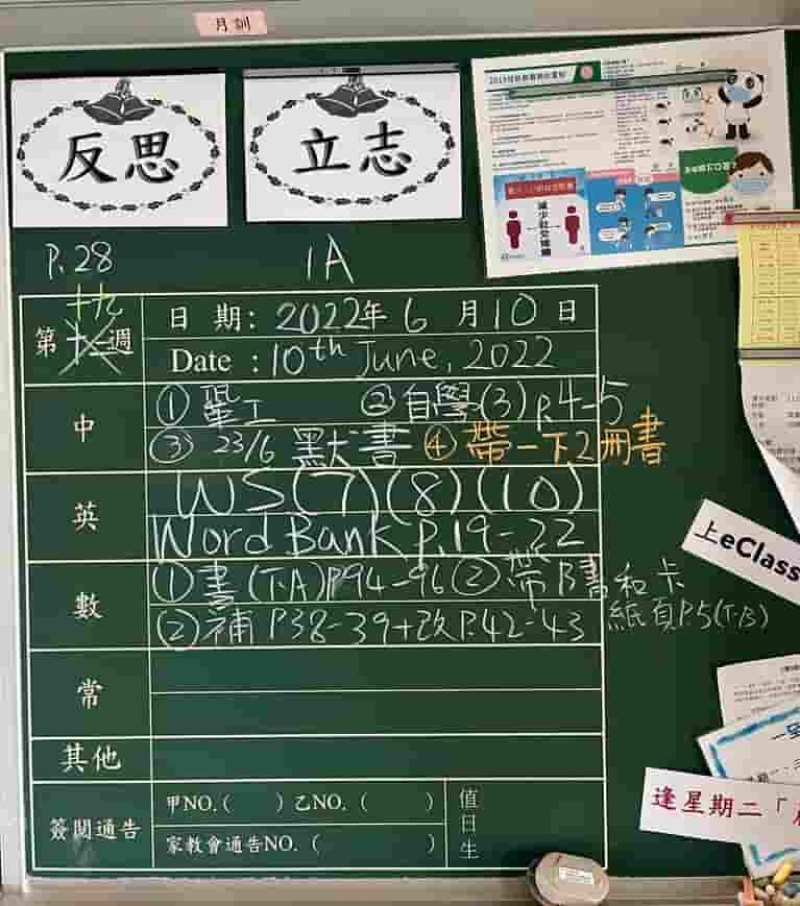 月訓
反思
立志
減少社交接觸
P.28
1A
十九
第十二週
日 期：2022年 6 月 10 日
Date : 10th June, 2022
中
① 工 ② 自學(3) P.4-5
③ 23/6 默書 ④ 帶一下2冊書
英
WS(7)(8)(10)
Word Bank P.19-22
數
① 書(T.A)P94-96 ② 帶B書和卡
② 補 P38-39+改P.42-43 紙頁P.5(T.B)
常
其他
簽閱通告
甲NO.( ) 乙NO. ( )
家教會通告NO. ( )
值日生
上eClass
逢星期二「